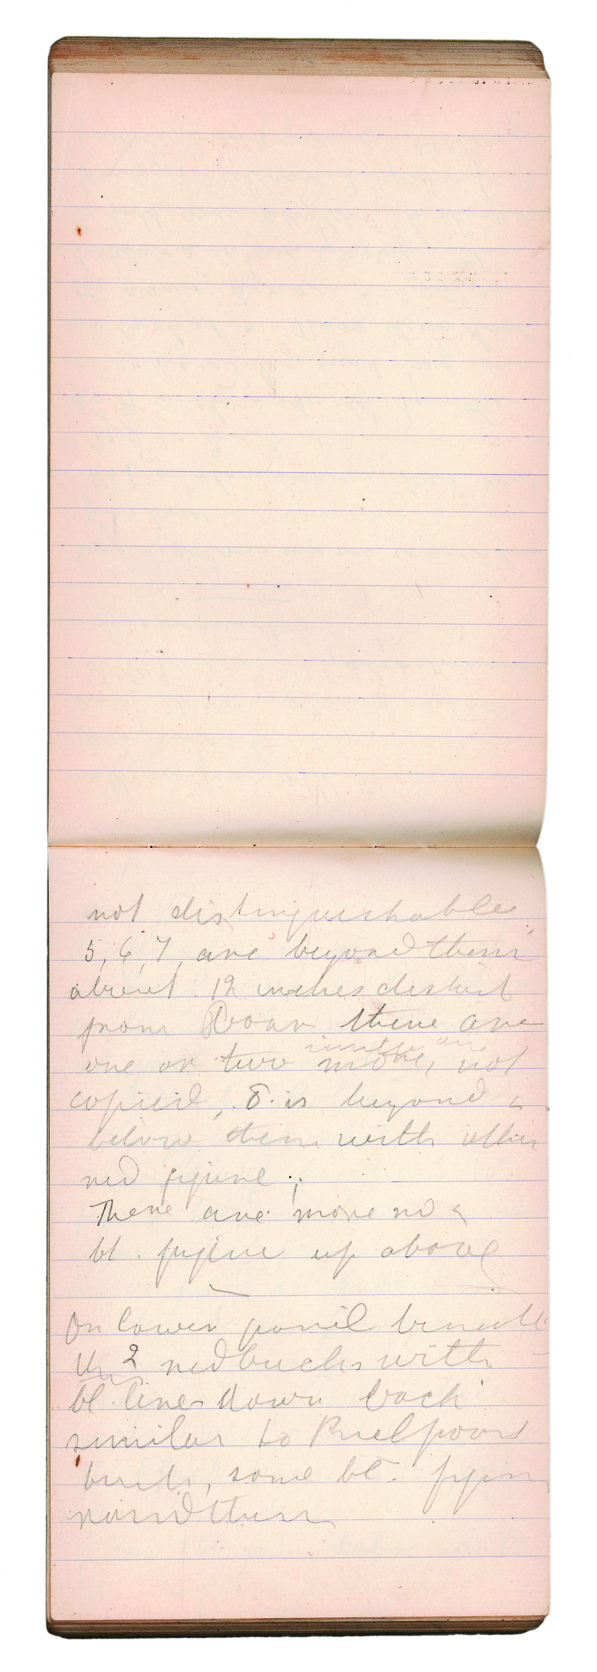 not distinguishable,
5, 6, 7, are beyond them
about 12 inches distant
from Roan there are
one or two more, not
copied, 8 is beyond &
below them with other
red figure;
There are more red &
bl. figure up above
On lower panel beneath
2 red bucks with
bl lines down back
similar to Buelpoort
bucks, some bl. figures
round them